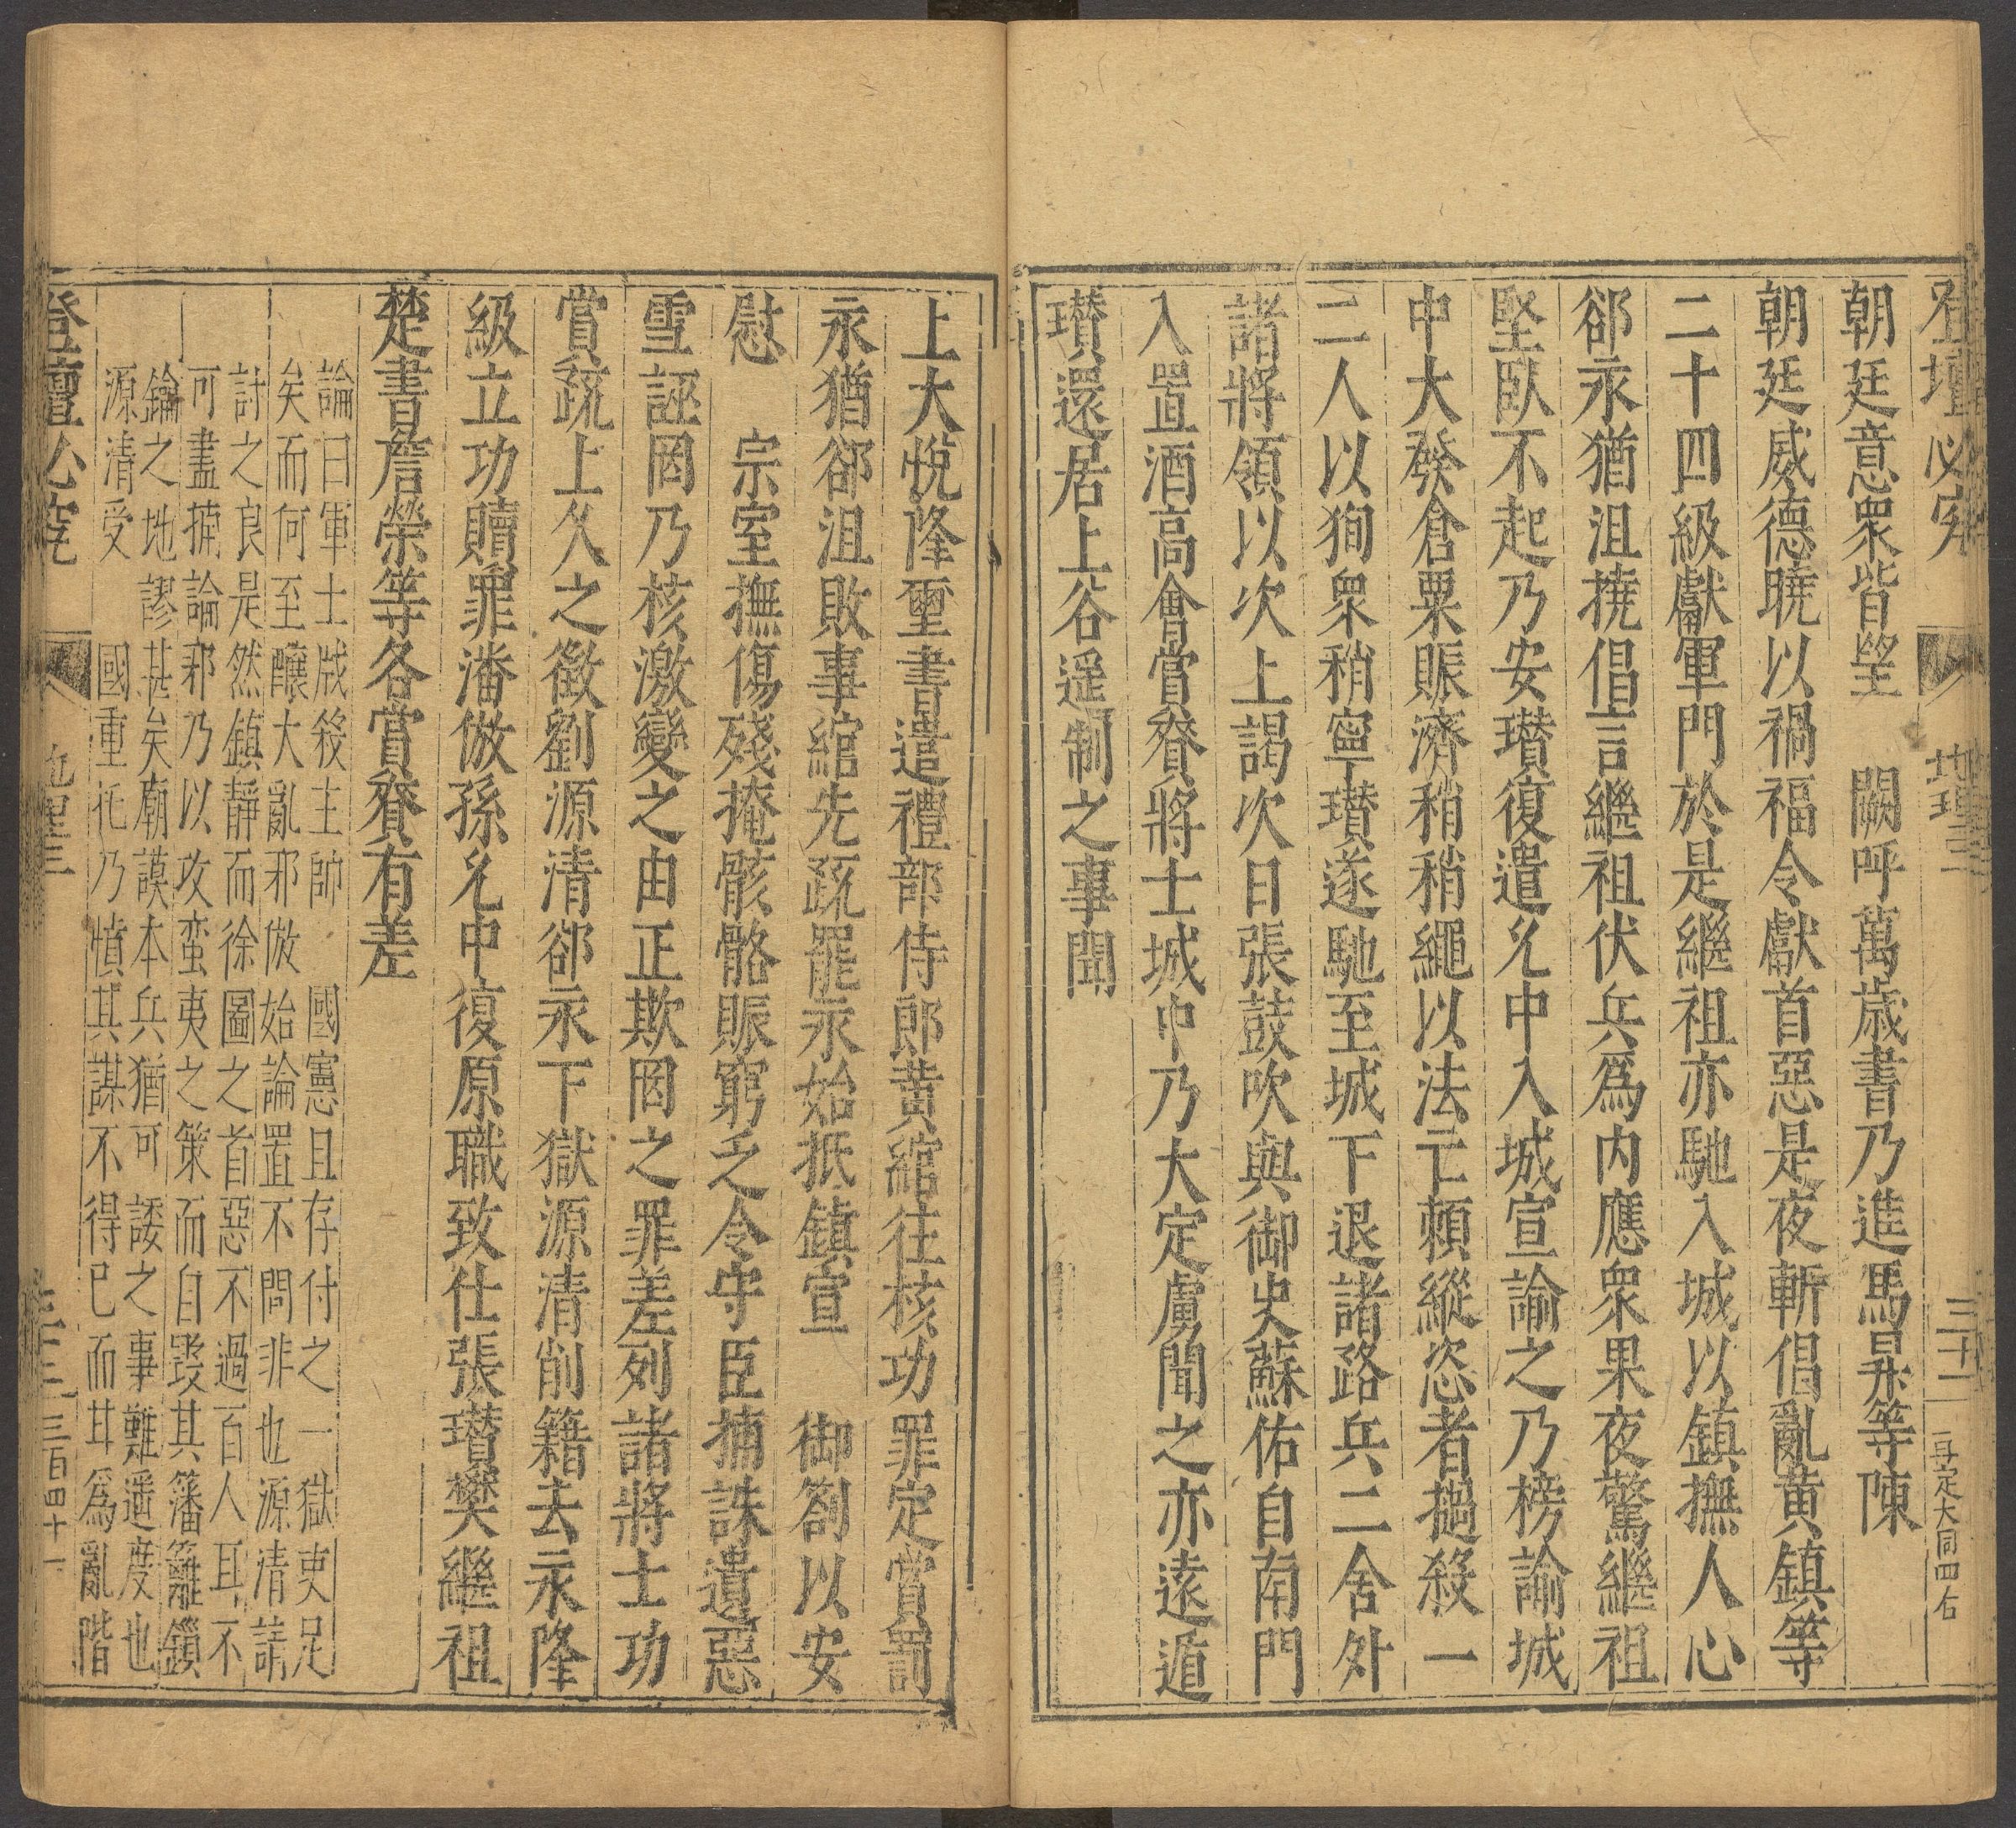 登壇必究 地理三 三十一 再定大同四右
朝廷意衆皆望 闕呼萬歳書乃進馬昇等陳
朝廷威德曉以禍福令獻首惡是夜斬倡亂黄鎮等
二十四級獻軍門於是繼祖亦馳入城以鎮撫人心
郤永猶沮撓倡言繼祖伏兵爲内應衆果夜驚繼祖
堅臥不起乃安瓚復遣允中入城宣諭之乃榜諭城
中大發倉粟賑濟稍稍繩以法亡賴縱恣者撾殺一
二人以狥衆稍寧瓚遂馳至城下退諸路兵二舍外
諸將領以次上謁次日張鼓吹與御史蘇佑自南門
入置酒高會賞賚將士城中乃大定虜聞之亦遠遁
瓚還居上谷遥制之事聞
上大悅隆璽書遣禮部侍郎黄綰往核功罪定賞罰
永猶郤沮敗事綰先疏罷永始抵鎮宣 御劄以安
慰 宗室撫傷殘掩骸骼賑窮乏令守臣捕誅遺惡
雪誣罔乃核激變之由正欺罔之罪差列諸將士功
賞疏上久之徵劉源清郤永下獄源清削籍去永隆
級立功贖罪潘倣孫允中復原職致仕張瓚樊繼祖
楚書詹榮等各賞賚有差
論曰軍士戕殺主帥 國憲且存付之一獄吏足
矣而何至釀大亂邪倣始論置不問非也源清請
討之良是然鎮靜而徐圖之首惡不過百人耳不
可盡掩論邪乃以攻蛮夷之策而自毀其籓籬鎖
鑰之地謬甚矣廟謨本兵猶可諉之事難遥度也
源清受 國重托乃憤其謀不得已而甘爲亂階
登壇必究 地理三 三十二 三百四十一